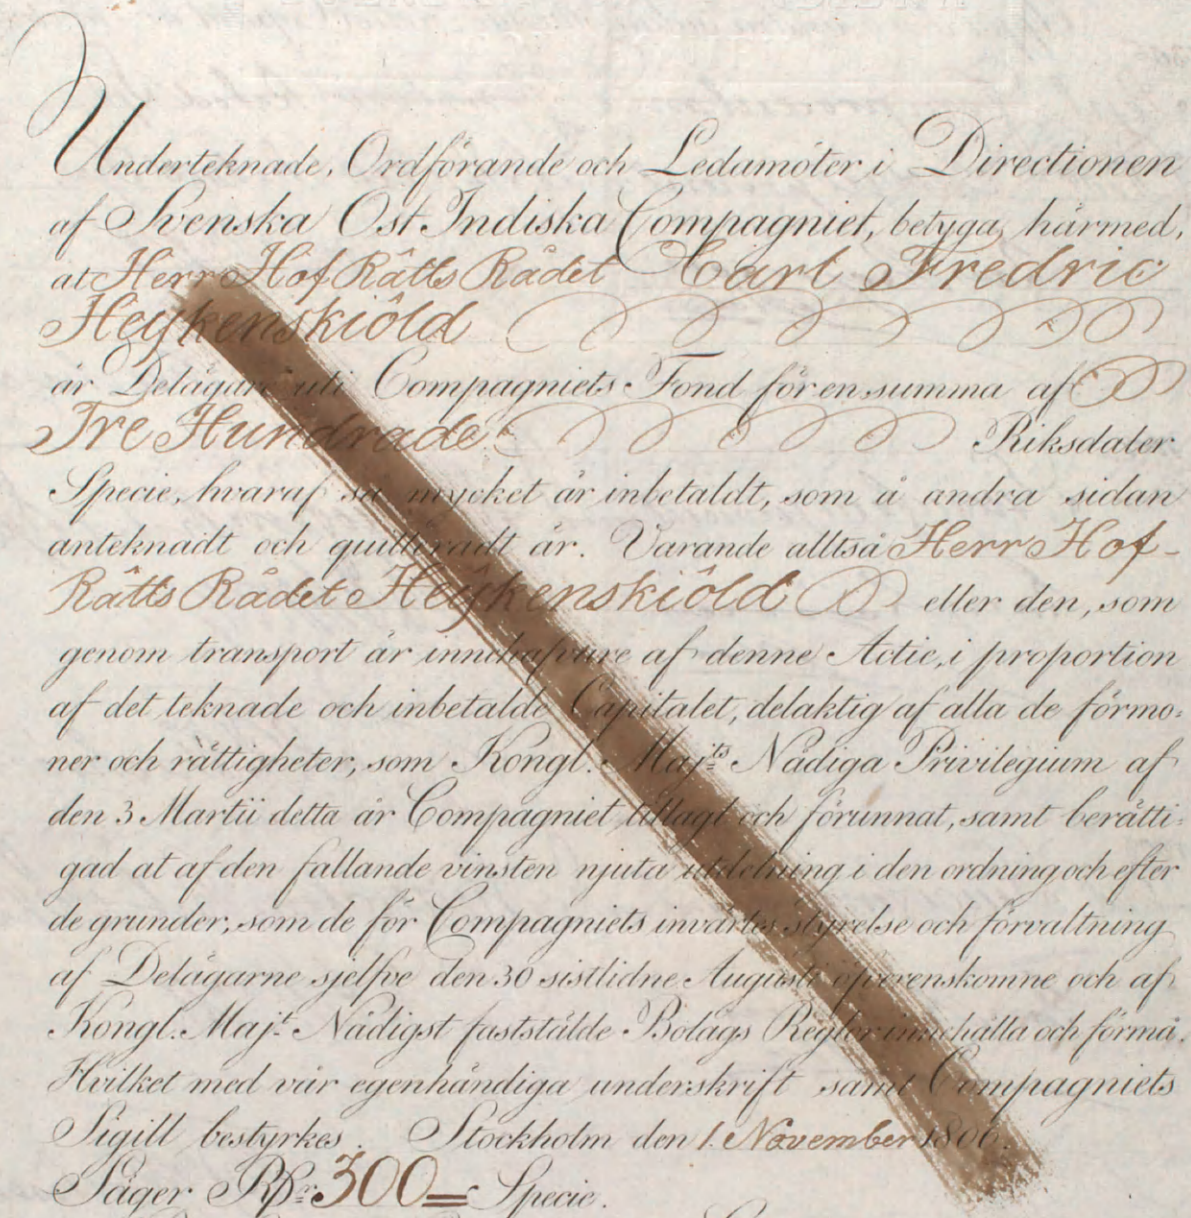 Underteknade, Ordförande och Ledamöter i Directionen
af Svenska Ost Indiska Compagniet, betyga härmed,
at Herr Hof Rätts Rådet Carl Fredric
Heÿkenskiöld
är Delägare uti Compagniets Fond för en summa af
Tre Hundrade Riksdaler
Specie, hvaraf så mycket är inbetaldt, som å andra sidan
anteknadt och quitteradt är. Varande alltså Herr Hof-
Rätts Rådet Heÿkenskiöld eller den, som
genom transport är innehafvare af denne Actie, i proportion
af det teknade och inbetalde Capitalet, delaktig af alla de förmo-
ner och rättigheter, som Kongl. Maj:ts Nådiga Privilegium af
den 3 Martii detta år Compagniet tillagt och förunnat, samt berätti-
gad at af den fallande vinsten njuta utdelning i den ordning och efter
de grunder, som de för Compagniets invärtes styrelse och förvaltning
af Delägarne sjelfve den 30 sistlidne Augusti öfverenskomne och af
Kongl. Maj:t Nådigst fastställde Bolags Reglor innehålla och förmå.
Hvilket med vår egenhändiga underskrift samt Compagniets
Sigill bestyrkes. Stockholm den 1. November 1806.
Säger Rdr 300 Specie.